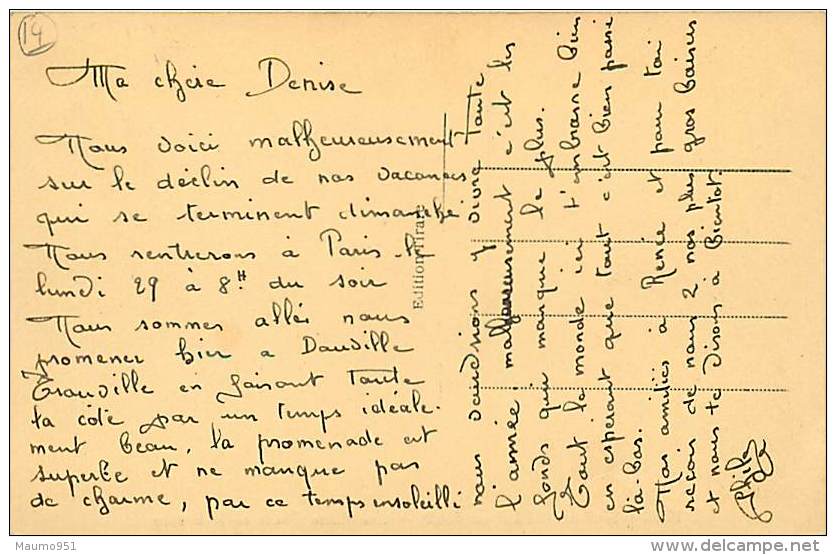 14
Ma chère Denise
Nous voici malheureusement
sur le déclin de nos vacances
qui se terminent dimanche.
Nous rentrerons à Paris le
lundi 29 à 8H du soir
Nous sommes allés nous
promener hier a Dauville
Trouville en faisant toute
la côte par un temps idéale-
ment beau, la promenade est
superbe et ne manque pas
de charme, par ce temps insoleillé
nous voudrions y vivre toute
l'année, malheureusement c'est les
fonds qui manque le plus.
Tout le monde ici t'embrasse bien
en espérant que tout c'est bien passé
là-bas.
Nos amitiés à Renée et pour toi
reçois de nous 2 nos plus gros baisers
et nous te disons à bientôt.
Edition
Maumo951
delcampe.net